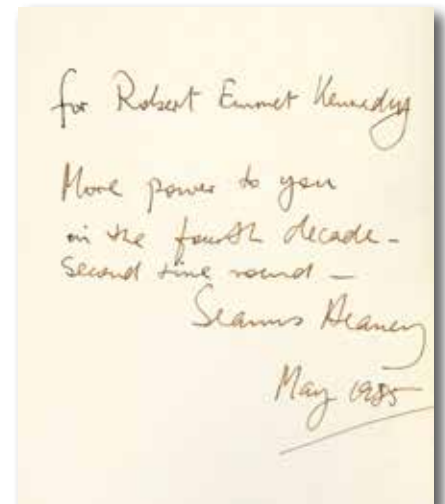 for Robert Emmet Kennedy
More power to you
in the fourth decade –
second time round –
Seamus Heaney
May 1985